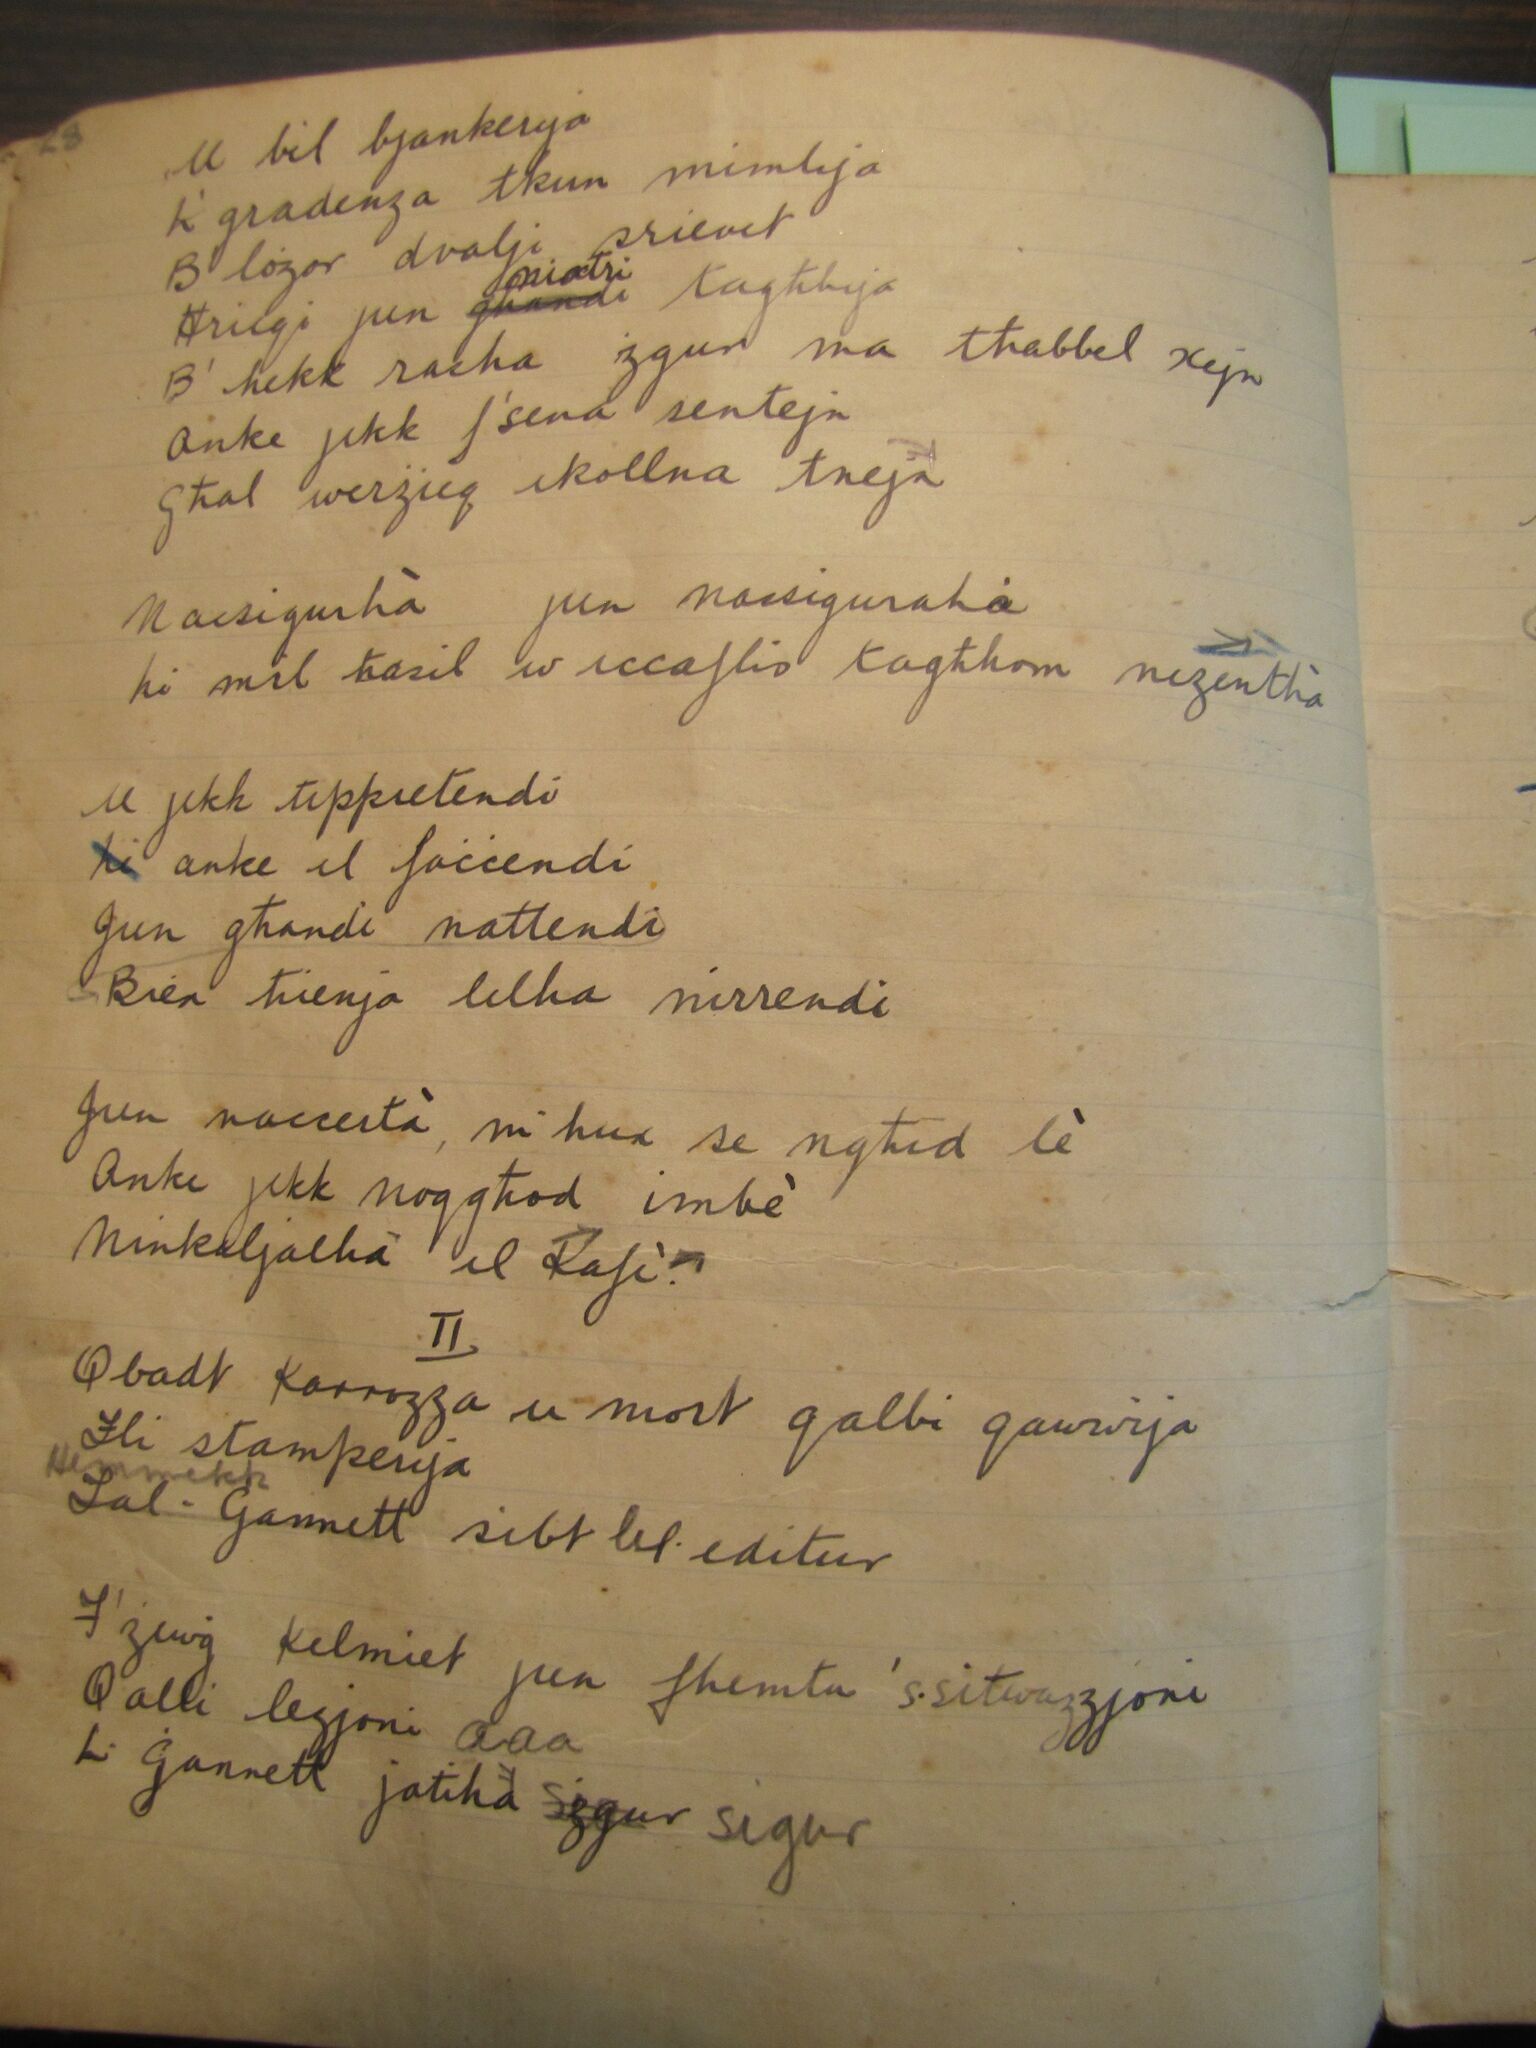 28
U bil bjankerija
L' gradenza tkun mimlija
B' lożor dvalji srievet
Ħriegi jien nixtri ghandi tagħhija
B' hekk rasha żgur ma tħabbel xejn
Anke jekk f'sena sentejn
Għal werżieq ikollna tnejn
Nassigurhà jien nassigurahà
Li mil ħasil w eccaflis tagħhom neżenthà
U jekk tippretendi
Li anke il faċċendi
Jien għandi nattendi
Bien ħienja lilha nirrendi
Jien naccertà, m'hux se ngħid lè
Anke jekk noqgħod imbè
Ninkaljalhà il kafè.
II
Qbadt karrozza u mort qalbi qawwija
Ħli stamperija
Hemmekk
Lal-Gannett sibt lel. editur
F'żewġ kelmiet jien fhemtu 's.sitwazzjoni
Qalli leżjoni aaa
L. Gannett jatihà sigur